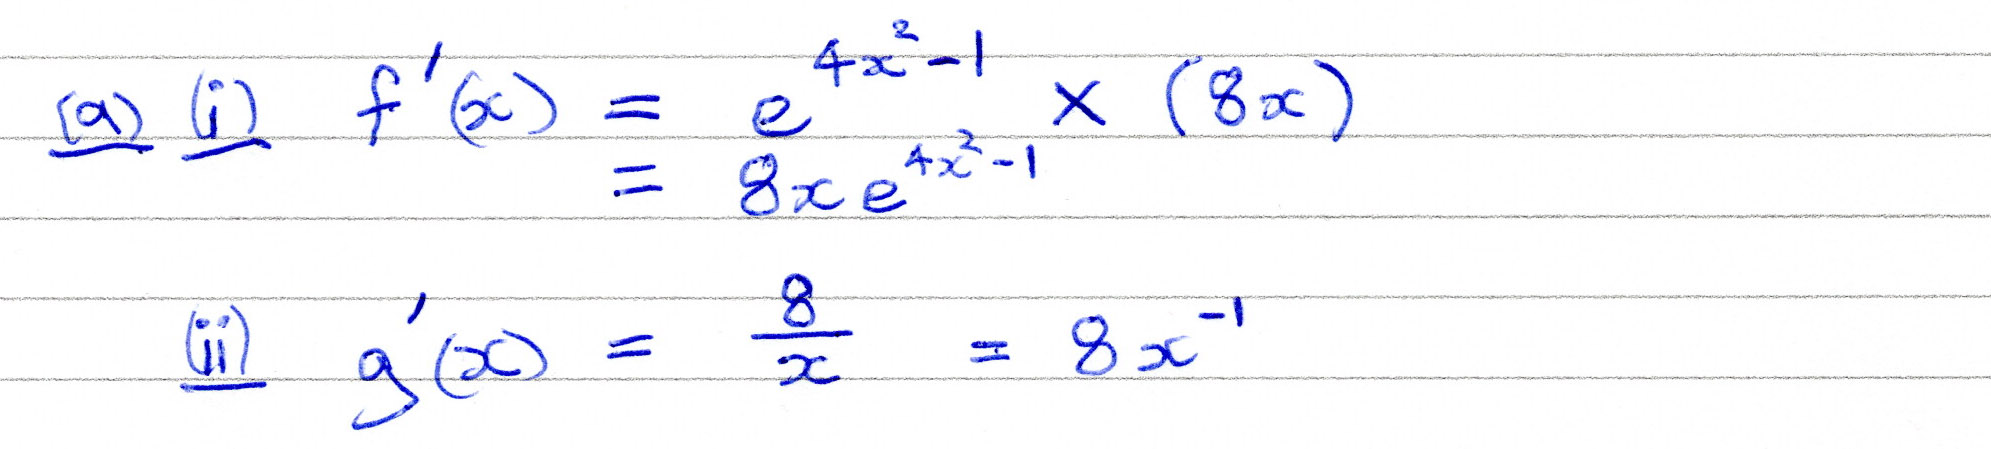 (a) (i) f'(x) = e^{4x^2-1} × (8x)
= 8xe^{4x^2-1}
(ii) g'(x) = \frac{8}{x} = 8x^{-1}